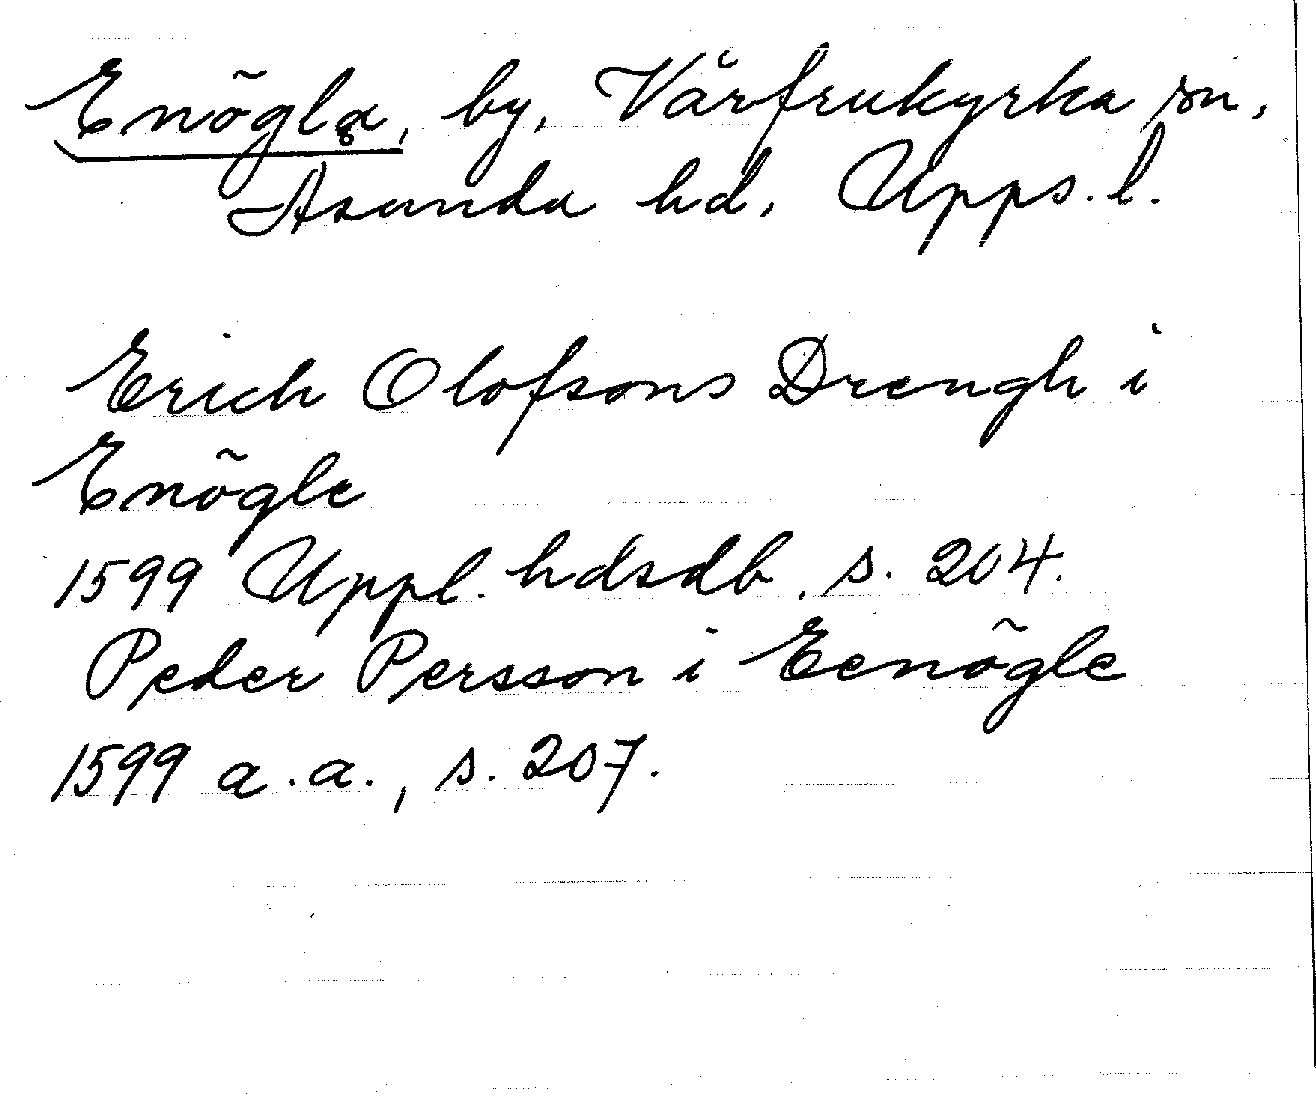 Enögla, by, Vårfrukyrka sn,
Åsunda hd, Upps. l.
Erich Olofsons Drengh i
Enögle
1599 Uppl. hdsdb. s. 204.
Peder Persson i Eenögle
1599 a.a., s. 207.